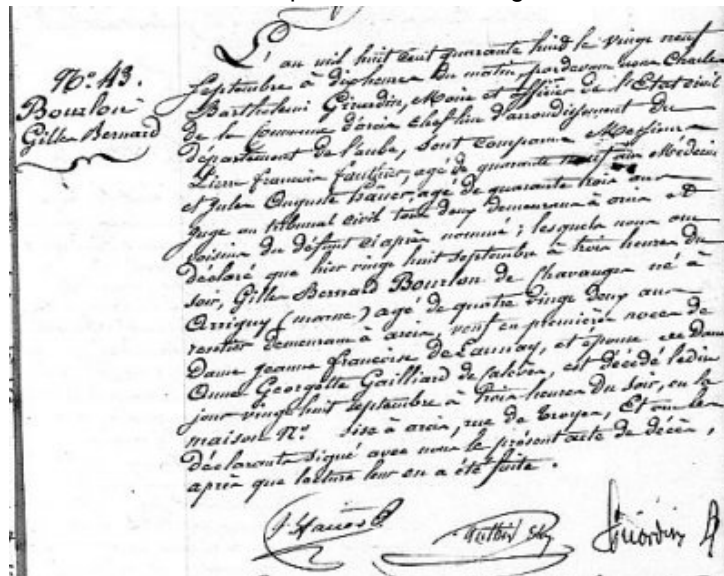 N.º 43.
Bourlon
Gille Bernard
L'an mil huit cent quarante huit le vingt neuf
Septembre à dix heures du matin pardevant nous Charles
Barthelemi Girardin, Maire et officier de l'Etat civil
de la Commune d'arcis Chef lieu d'arrondissement du
département de l'aube, sont comparus Messieurs
Pierre francois fauthier, agé de quarante ans Médecin
et Jules Auguste agé de quarante trois ans
Juge au tribunal Civil tous deux demeurans à arcis et
voisins du défunt ci après nommé ; lesquels nous ont
déclaré que hier vingt huit septembre à trois heures du
soir, Gille Bernard Bourlon de Chavanges né à
Arrigny (marne) agé de quatre vingt deux ans
rentier demeurant à arcis, veuf en première noces de
Dame jeanne francoise de Launay, et époux de Dame
Anne Georgette Gailliard de est décédé ledit
jour vingt huit septembre à trois heures du soir, en la
maison N.º sise à arcis, rue de troyes, Et ont les
déclarants signé avec nous le présent acte de décès,
après que lecture leur en a été faite.
Girardin